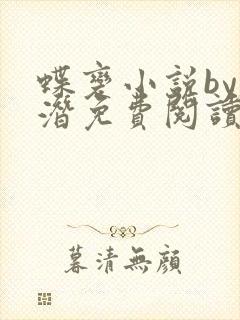 蝶寵小説by
潛免費閱讀
暮清無顏